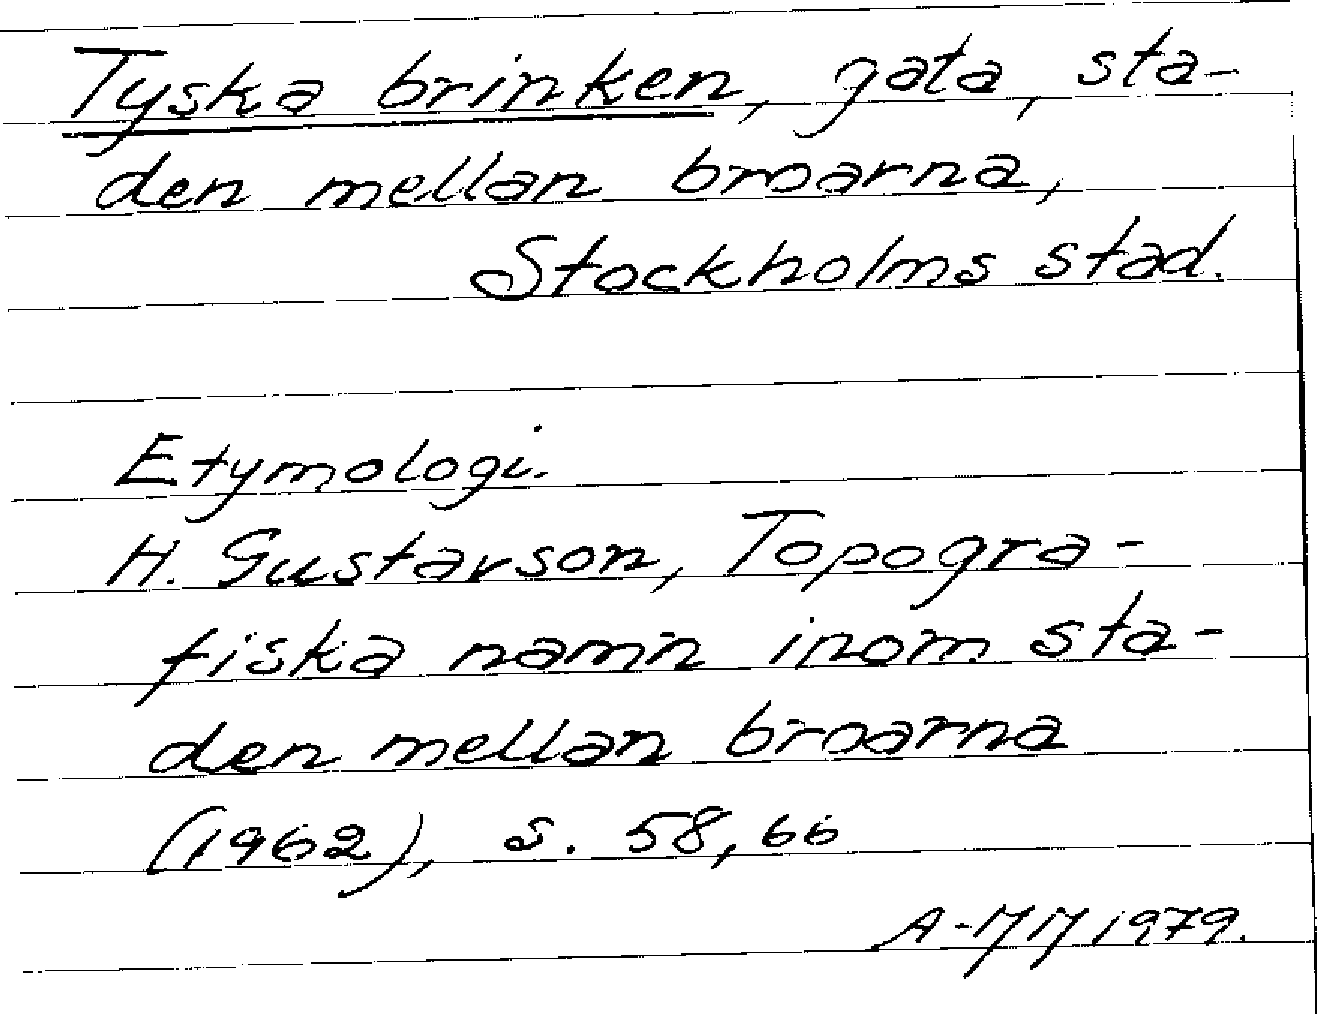 Tyska brinken, gata, sta-
den mellan broarna,
Stockholms stad.
Etymologi.
H. Gustavson, Topogra-
fiska namn inom sta-
den mellan broarna
(1962), s. 58, 66
A-MM 1979.